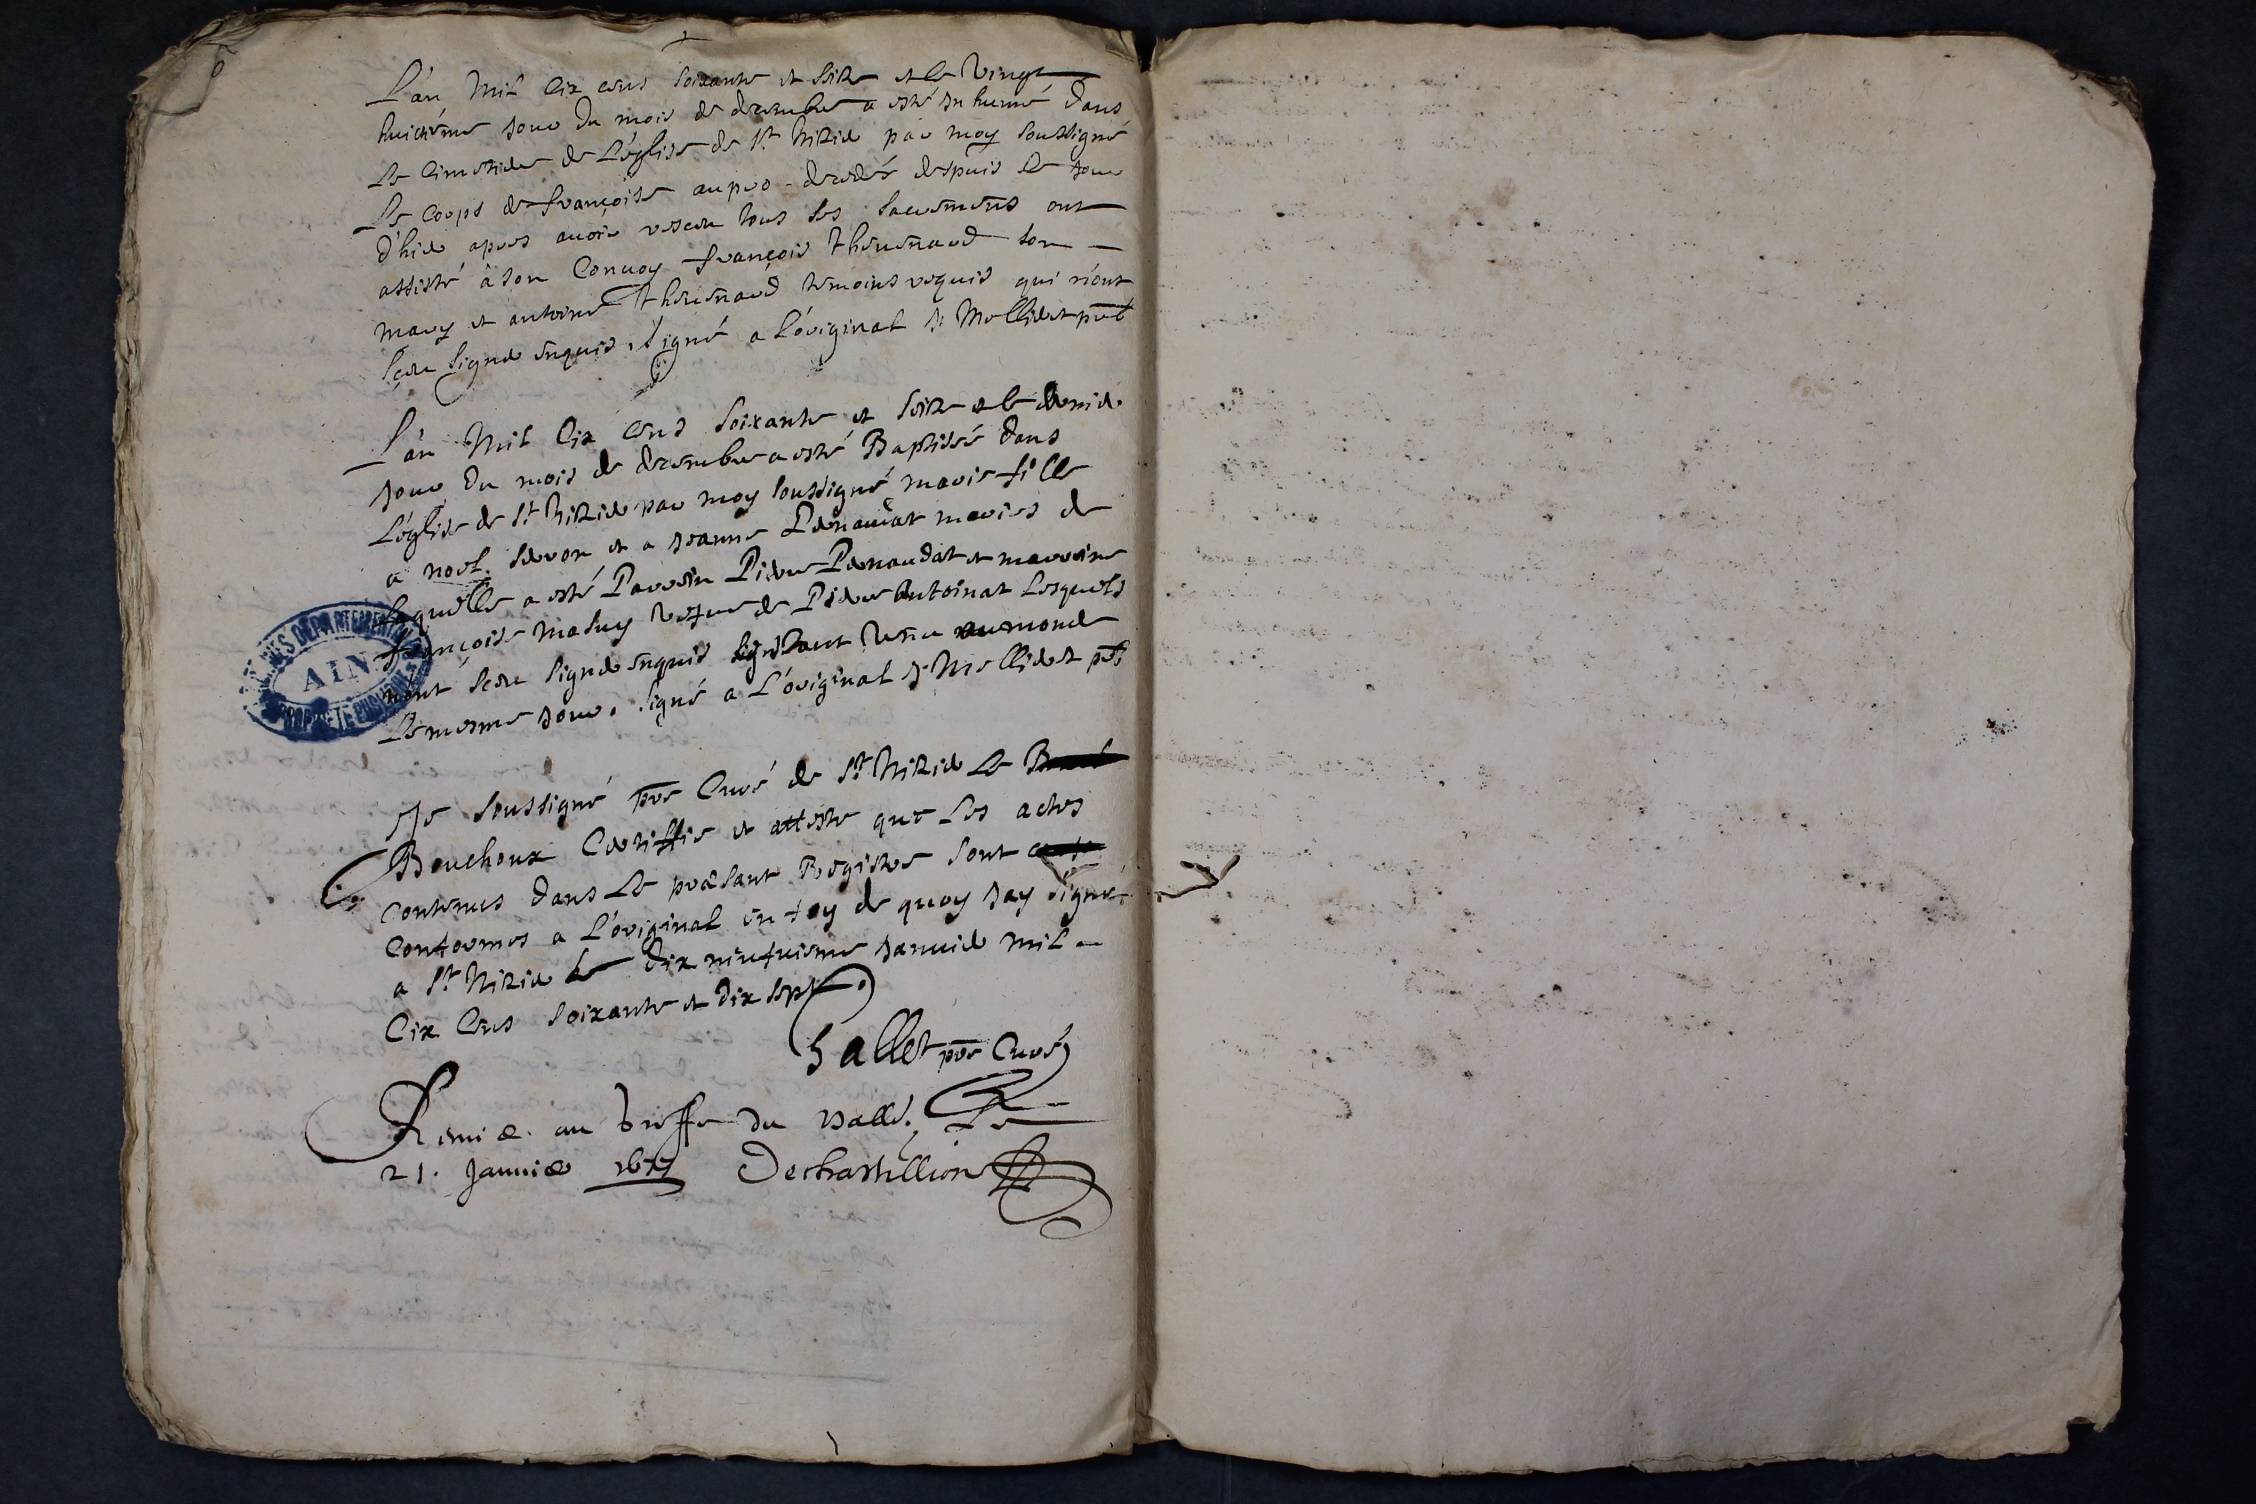 L'an Mil Cix cens soixante et seize et le vingt
huictième jour du mois de decembre a esté inhumé dans
Le Cimetière de L'église de St Nizier par moy soussigné
Le Corps de françoise aupro decedée despuis le jour
d'hier apres avoir resceu tous les sacremens ont
assisté à son Convoy françois Thevenard son
mary et antoine Thevenard temoins requis qui n'ont
sçeu signer enquis. signé a L'original J. Mellieret pbre
L'an Mil Cix Cens soixante et seize et le dernier
jour du mois de decembre a esté Baptisée dans
L'église de St Nizier par moy soussigné marie fille
a noel et a jeanne mariés de
Laquelle a esté Parrein Pierre Penaudat et marreine
françoise vefve de Pierre Antoinat Lesquels
n'ont sceu signer enquis venue au monde
Le mesme jour. signé a L'original J. Mellieret pbre
Je soussigné pbre Curé de St Nizier Le
Bouchoux Certiffie et atteste que Les actes
contenus dans Le presant Registre sont
Conformes a L'original en foy de quoy jay signé
a St Nizier le dix neufviesme janvier mil
Cix Cens soixante et dix sept.
Sallet pbre Curé
Remis au Greffe du Baill. Le
21. Janvier 1677 Dechastillion
ARCHIVES DEPARTEMENTALES
AIN
PROPRIETE PUBLIQUE